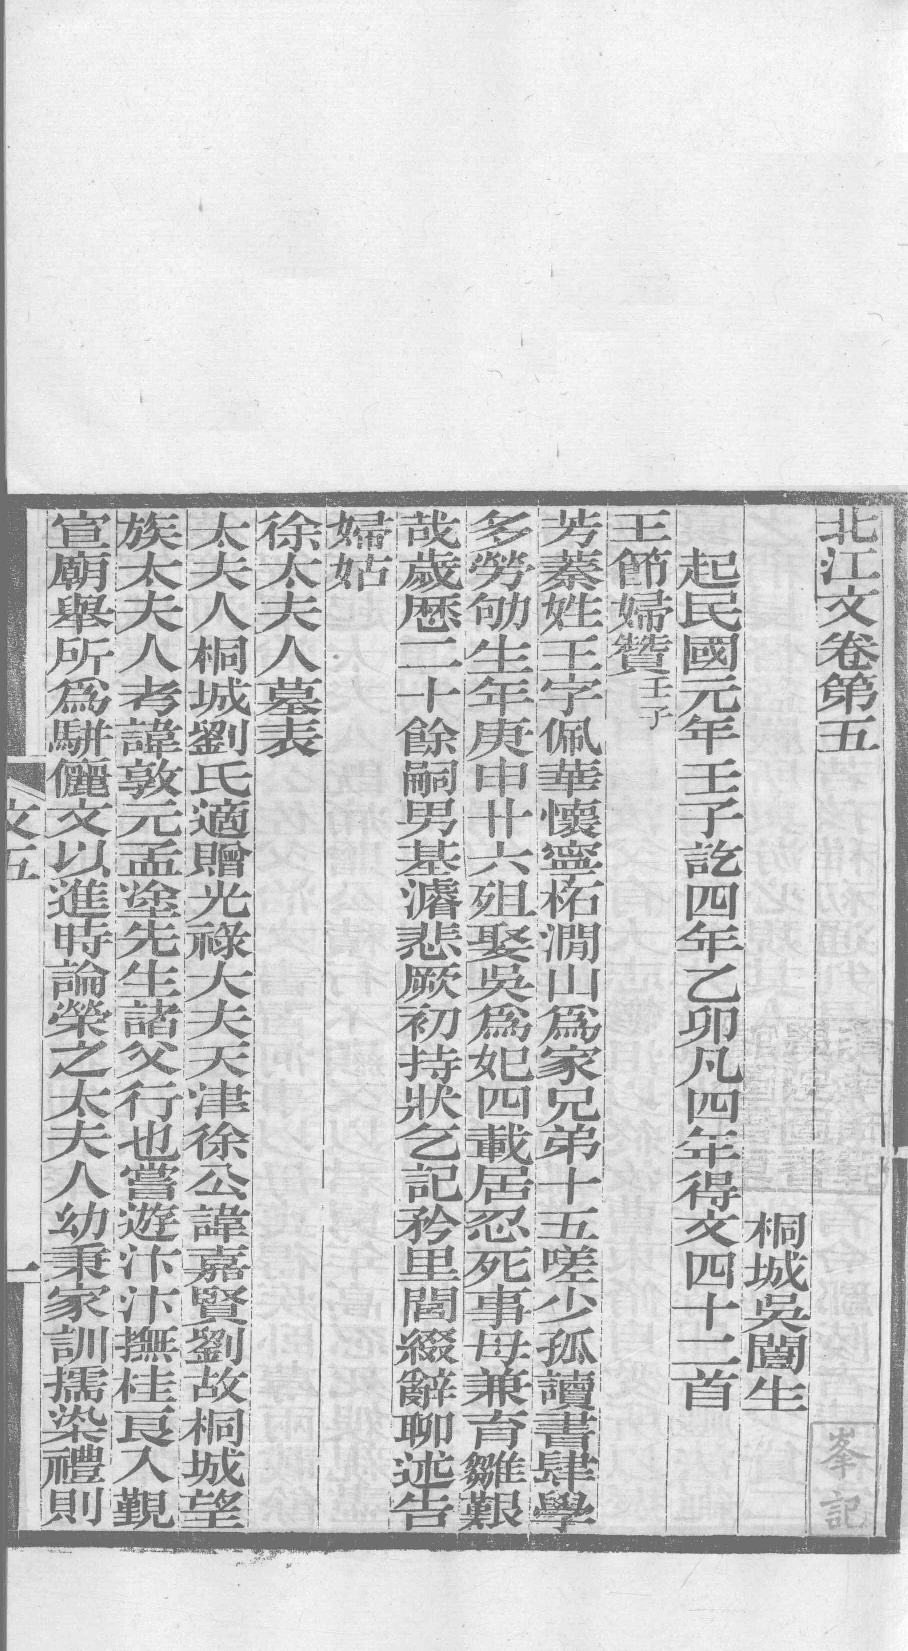 北江文卷第五
桐城吳闓生
起民國元年壬子訖四年乙卯凡四年得文四十二首
王節婦贊壬子
芳蓁姓王字佩華懷寧柘澗山爲家兄弟十五嗟少孤讀書肆學
多勞劬生年庚申廿六殂娶吳爲妃四載居忍死事母兼育雛艱
哉歲歷二十餘嗣男基濬悲厥初持狀乞記矜里閭綴辭聊述告
婦姑
徐太夫人墓表
太夫人桐城劉氏適贈光祿大夫天津徐公諱嘉賢劉故桐城望
族太夫人考諱敦元孟塗先生諸父行也嘗遊汴汴撫桂良入覲
宣廟舉所爲駢儷文以進時論榮之太夫人幼秉家訓擩染禮則
文五
一
峯記